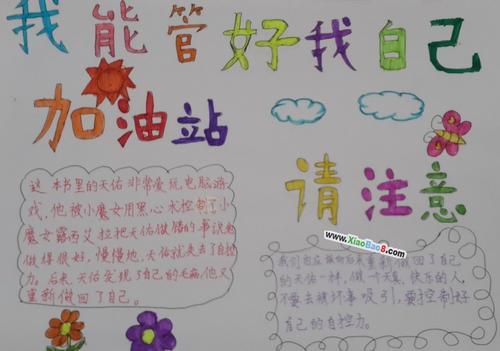 我能管好我自己
加油站
请注意
www.XiaoBao8.com
这本书里的天佑非常爱玩电脑游
戏,他被小魔女用黑心术控制了小
魔女露西艾拉把天佑做错的事说成
做得很好,慢慢地,天佑就失去了自控
力。后来,天佑发现了自己的毛病,他又
重新做回了自己。
我们也应该向后来重新做回了自己
的天佑一样,做一个天真、快乐的人,
不要去被坏事吸引,要控制好
自己的自控力。